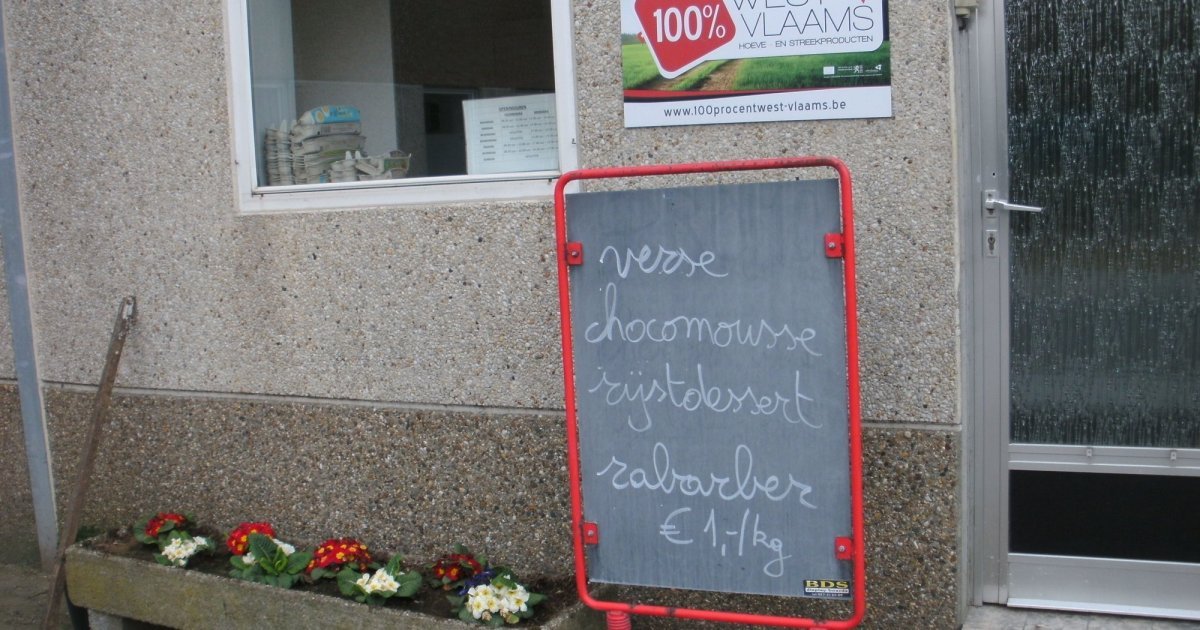 100%
WEST
VLAAMS
HOEVE - EN STREEKPRODUCTEN
www.100procentwest-vlaams.be
verse
chocomousse
rijstdessert
rabarber
€ 1,-/kg
BDS